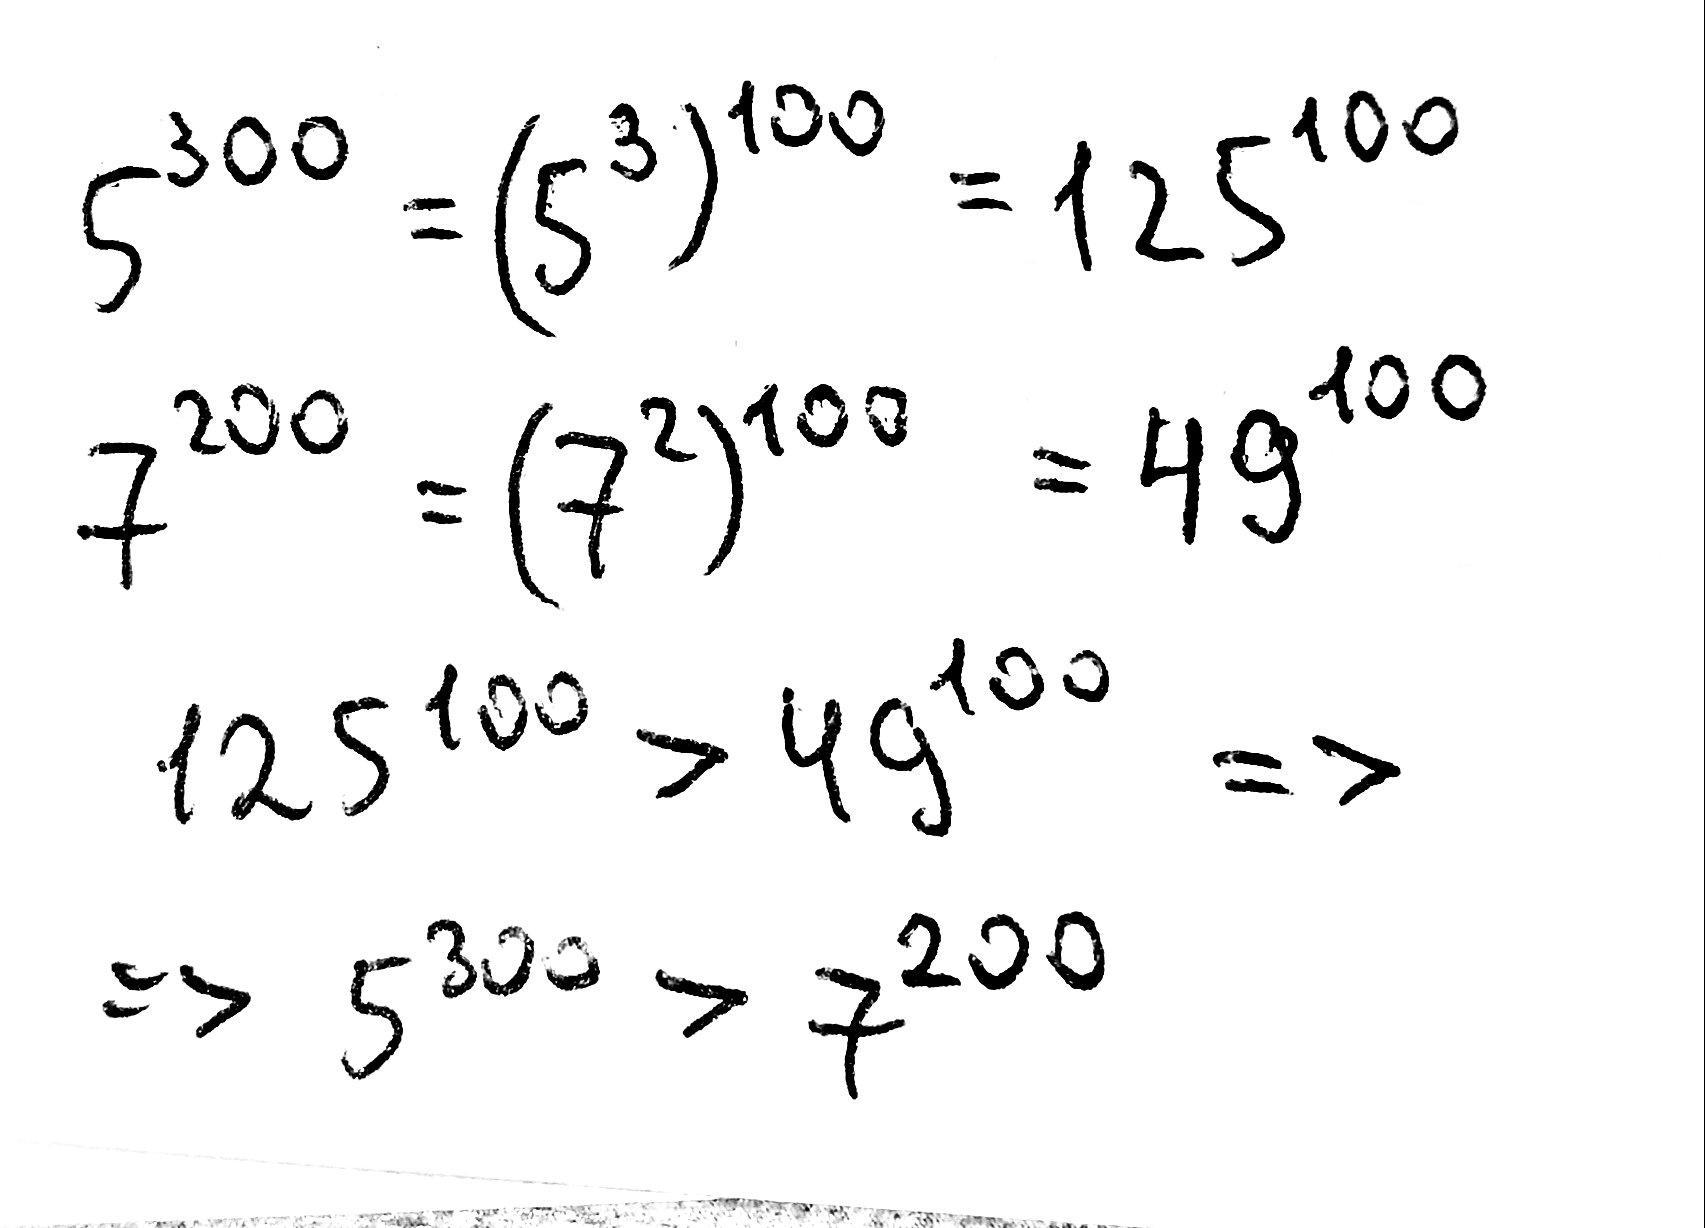 5^300 = (5^3)^100 = 125^100
7^200 = (7^2)^100 = 49^100
125^100 > 49^100 =>
=> 5^300 > 7^200